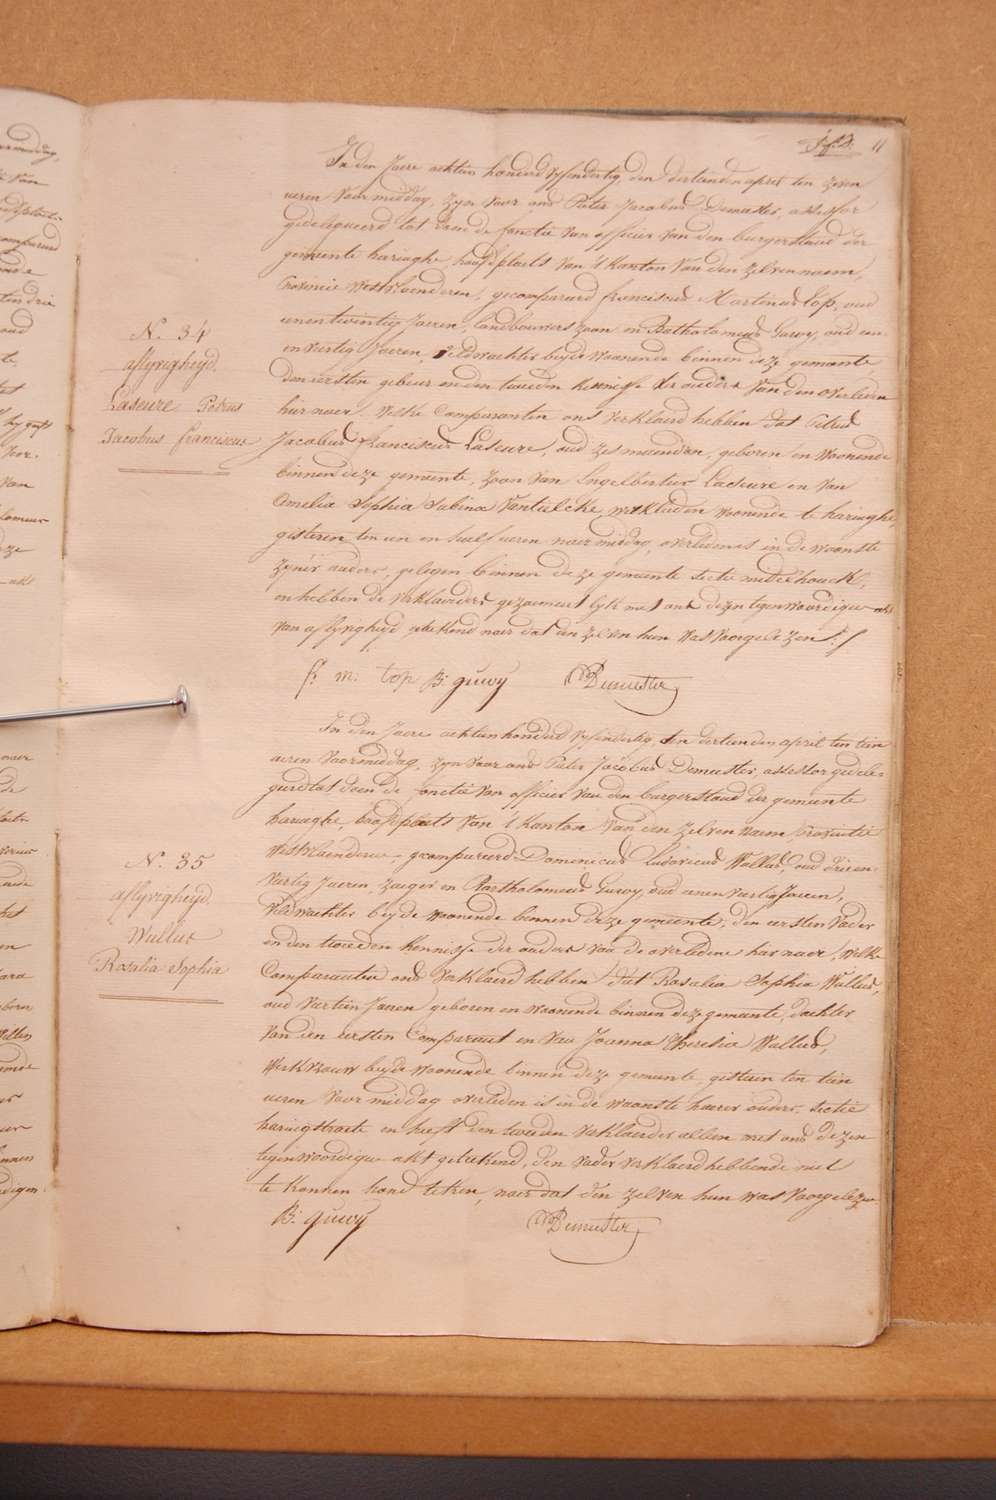 11
In den Jaere achtien honderd vyfendertig den dertienden april ten zeven
ueren voormiddag, zyn voor ons Pieter Jacobus Demeester, assessor
gedelegueerd tot doen de fonctie van officier van den burgerstand der
gemeente haringhe hoofdplaets van 't Kanton van den zelven naem,
Provincie Westvlaenderen, gecompareerd franciscus Martinus Top, oud
eenentwintig Jaeren, landbouwers zoon en Bartholomeus Guwy, oud een
en veertig Jaeren, veldwachter beyde woonende binnen deze gemeente,
den eersten gebuer en den tweeden kennisse der ouders van den overleden
hier naer, welke Comparanten ons verklaerd hebben dat Petrus
Jacobus franciscus Laseure, oud zes maenden, geboren en woonende
binnen deze gemeente, zoon van Ingelbertus Laseure en van
Amelia Sophia Sabina Vantielcke, werklieden woonende te haringhe,
gisteren ten een en half ueren naer middag, overleden is in de woonste
zyner ouders, gelegen binnen deze gemeente sectie
en hebben de verklaerders gezaementlyk met ons dezen tegenwoordigen akt
van aflyvigheyd geteekend naer dat den zelven hun was voorgelezen
N. 34
aflyvigheyd.
Laseure Petrus
Jacobus franciscus
fr. m. top B: guwy Demeester
In den Jaere achtien honderd vyfendertig, den dertienden april ten tien
ueren voormiddag, zyn voor ons Pieter Jacobus Demeester, assessor gedele-
gueerd tot doen de fonctie van officier van den burgerstand der gemeente
haringhe, hoofdplaets van 't Kanton van den zelven naem Provintie
Westvlaenderen, gecompareerd Dominicus Ludovicus Wullus, oud drieen-
veertig Jaeren, zaeger en Bartholomeus Guwy, oud eenenveertig Jaeren,
veldwachter beyde woonende binnen deze gemeente, den eersten vader
en den tweeden Kennisse der ouders van de overledene hier naer, welke
Comparanten ons verklaerd hebben dat Rosalia Sophia Wullus,
oud veertien Jaeren geboren en woonende binnen deze gemeente, dochter
van den eersten Comparant en van Joanna Theresia Wullus,
werkvrouw beyde woonende binnen deze gemeente, gisteren ten tien
ueren voormiddag overleden is in de woonste haerer ouders, sectie
haringstraete en heeft den tweeden verklaerder alleen met ons dezen
tegenwoordigen akt geteekend, den vader verklaerd hebbende niet
te konnen hand teken, naer dat den zelven hun was voorgelezen
N. 35
aflyvigheyd
Wullus
Rosalia Sophia
B: guwy Demeester